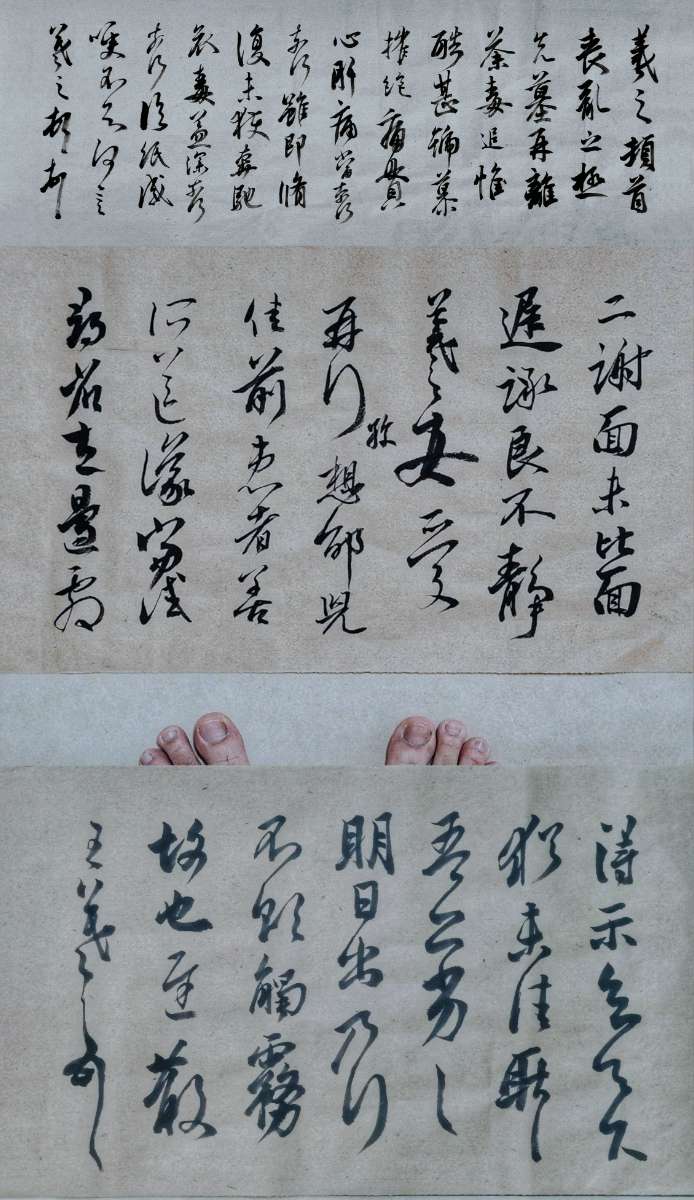 羲之頓首
喪亂之極
先墓再離
荼毒追惟
酷甚號慕
摧絕痛貫
心肝痛當奈何
奈何雖即脩
復未獲奔馳
哀毒益深奈何
奈何臨紙感
哽不知何言
羲之頓首頓首
二謝面未比面
遲詠良不靜
羲之女愛
再拜想邵兒
珍
佳前患者善
所送議當試
尋省左邊劇
得示知足下
猶未佳耿耿
吾亦劣劣
明日出乃行
不欲觸霧
故也遲散
王羲之頓首